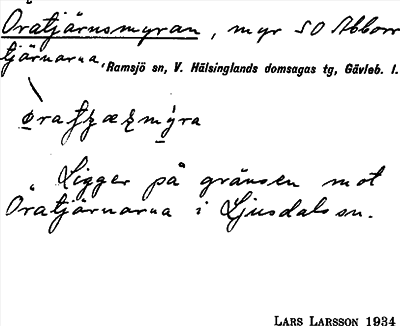 Öratjärnsmyran, myr SO Abborr
tjärnarna, Ramsjö sn, V. Hälsinglands domsagas tg, Gävleb. l.
Ligger på gränsen mot
Öratjärnarna i Ljusdals sn.
LARS LARSSON 1934